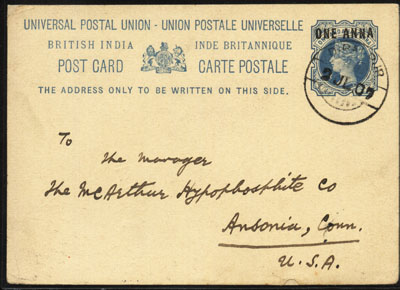 UNIVERSAL POSTAL UNION - UNION POSTALE UNIVERSELLE
BRITISH INDIA INDE BRITANNIQUE
POST CARD CARTE POSTALE
THE ADDRESS ONLY TO BE WRITTEN ON THIS SIDE.
ONE ANNA
2 JL 07
To
the manager
The McArthur Hypophosphite Co
Ansonia, Conn.
U.S.A.